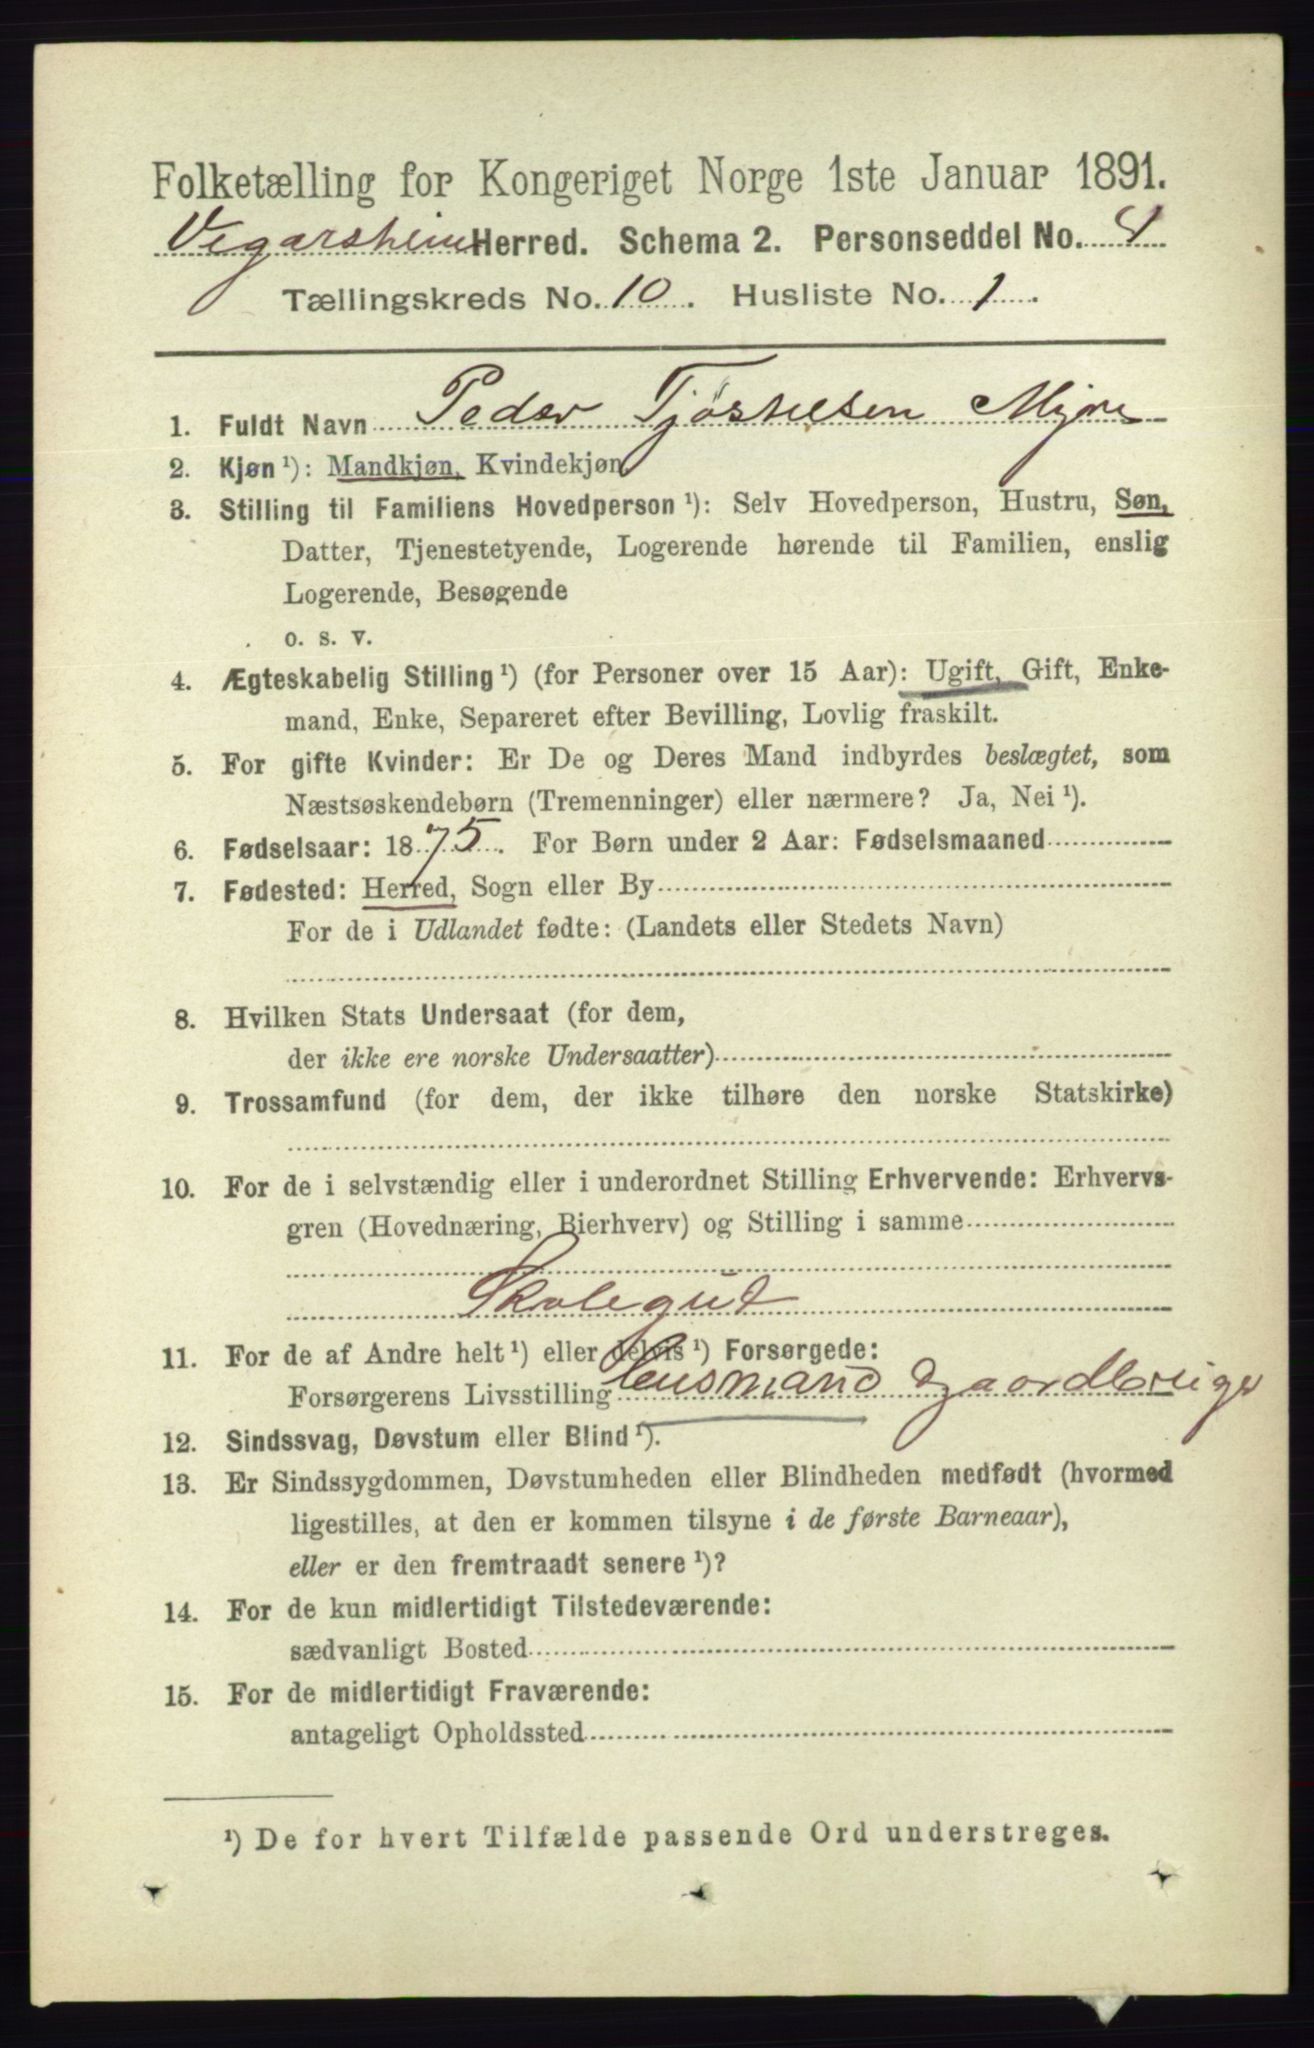 Folketælling for Kongeriget Norge 1ste Januar 1891.
Vegarsheim Herred. Schema 2. Personseddel No. 4
Tællingskreds No. 10. Husliste No. 1.
1. Fuldt Navn Peder Tjøstelsen Myre
2. Kjøn ¹): Mandkjøn, Kvindekjøn
3. Stilling til Familiens Hovedperson ¹): Selv Hovedperson, Hustru, Søn,
Datter, Tjenestetyende, Logerende hørende til Familien, enslig
Logerende, Besøgende
o. s. v.
4. Ægteskabelig Stilling ¹) (for Personer over 15 Aar): Ugift, Gift, Enke-
mand, Enke, Separeret efter Bevilling, Lovlig fraskilt.
5. For gifte Kvinder: Er De og Deres Mand indbyrdes beslægtet, som
Næstsøskendebørn (Tremenninger) eller nærmere? Ja, Nei ¹).
6. Fødselsaar: 1875. For Børn under 2 Aar: Fødselsmaaned
7. Fødested: Herred, Sogn eller By
For de i Udlandet fødte: (Landets eller Stedets Navn)
8. Hvilken Stats Undersaat (for dem,
der ikke ere norske Undersaatter)
9. Trossamfund (for dem, der ikke tilhøre den norske Statskirke)
10. For de i selvstændig eller i underordnet Stilling Erhvervende: Erhvervs-
gren (Hovednæring, Bierhverv) og Stilling i samme
Skolegut
11. For de af Andre helt ¹) eller delvis ¹) Forsørgede:
Forsørgerens Livsstilling Husmand Gaardbruger
12. Sindssvag, Døvstum eller Blind ¹).
13. Er Sindssygdommen, Døvstumheden eller Blindheden medfødt (hvormed
ligestilles, at den er kommen tilsyne i de første Barneaar),
eller er den fremtraadt senere ¹)?
14. For de kun midlertidigt Tilstedeværende:
sædvanligt Bosted
15. For de midlertidigt Fraværende:
antageligt Opholdssted
¹) De for hvert Tilfælde passende Ord understreges.